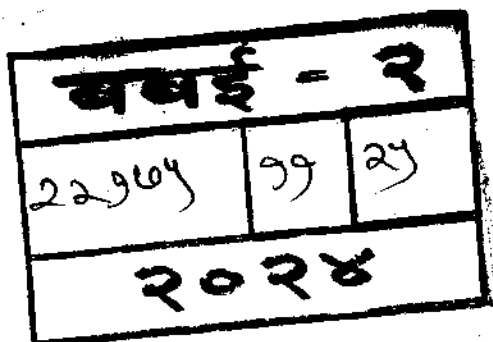 बबई - २
२२१७५ ११ २५
२०२४